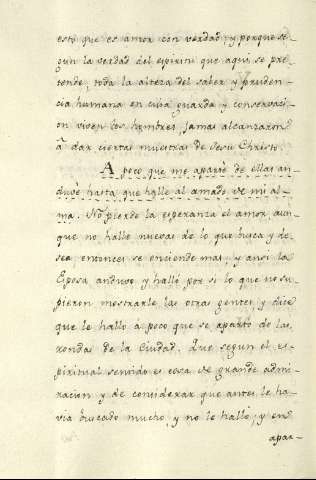 esto que es amor con verdad, y porque se-
gun la verdad del espiritu que aqui se pre
tende, toda la alteza del saber y pruden
cia humana en cuia guarda y conservaci
on viven los hombres, jamas alcanzaron
à dar ciertas muestras de Jesu Christo.
A poco que me aparté de ellas an
duve hasta que hallé al amado de mi al-
ma. No pierde la esperanza el amor, aun
que no halle nuevas de lo que busca y de
sea entonces se enciende mas, y ansi la
Esposa anduvo, y halló por si lo que no su
pieron mostrarle las otras gentes, y dice
que le halló à poco que se apartó de las
rondas de la Ciudad. Que segun el es
piritual sentido es cosa de grande admi
racion, y de considerar que antes le ha
via buscado mucho, y no le halló, y en
apar-